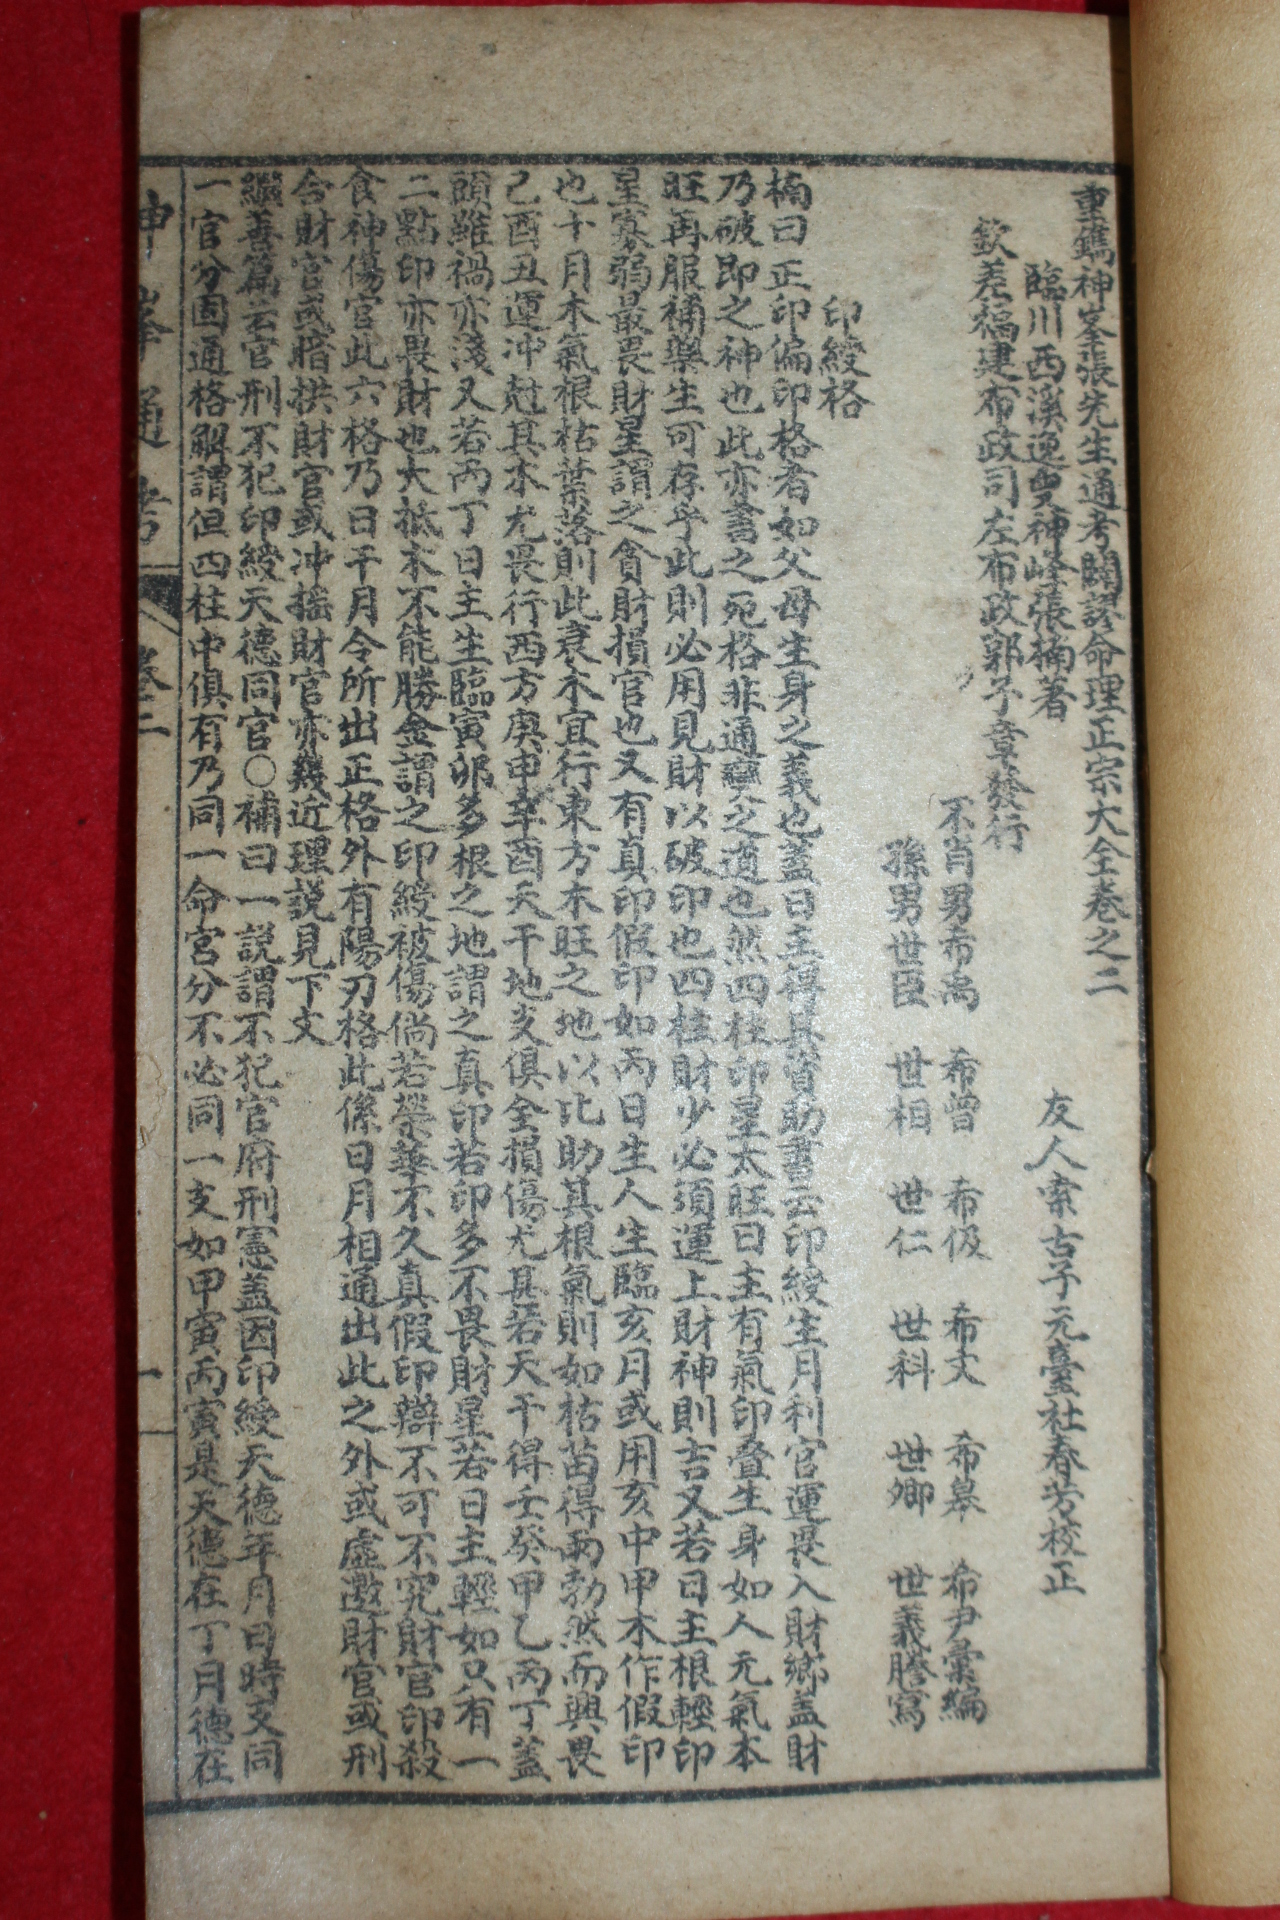 重鐫神峯張先生通考闢謬命理正宗大全卷之二
臨川西溪逸叟神峰張楠著
友人索古子元臺社春芳校正
欽差福建布政司左布政郭子章發行
不肖男希禹 希曾 希伋 希文 希皋 希尹彙編
孫男世臣 世相 世仁 世科 世卿 世義謄寫
印綬格
楠曰正印偏印格者如父母生身之義也蓋日主得其資助書云印綬生月利官運畏入財鄉蓋財
乃破即之神也此亦書之死格非通變之道也然四柱印星太旺日主有氣印叠生身如人元氣本
旺再服補藥生可存乎此則必用見財以破印也四柱財少必須運上財神則吉又若日主根輕印
星寡弱最畏財星謂之貪財損官也又有真印假印如丙日生人生臨亥月或用亥中甲木作假印
也十月木氣根枯葉落則此衰木宜行東方木旺之地以比助其根氣則如枯苗得雨勃然而興畏
己酉丑運冲尅其木尤畏行西方庚申辛酉天干地支俱全損傷尤甚若天干得壬癸甲乙丙丁蓋
頭雖禍亦淺又若丙丁日主生臨寅卯多根之地謂之真印若印多不畏財星若日主輕如只有一
二點印亦畏財也大抵木不能勝金謂之印綬被傷倘若榮華不久真假印辯不可不究財官印殺
食神傷官此六格乃日干月令所出正格外有陽刃格此係日月相通出此之外或虛邀財官或刑
合財官或暗拱財官或冲搖財官亦幾近理說見下文
繼善篇云官刑不犯印綬天德同官○補曰一說謂不犯官府刑憲蓋因印綬天德年月日時支同
一官分固通格解謂但四柱中俱有乃同一命宮分不必同一支如甲寅丙寅是天德在丁月德在
神峯通考
卷二
一